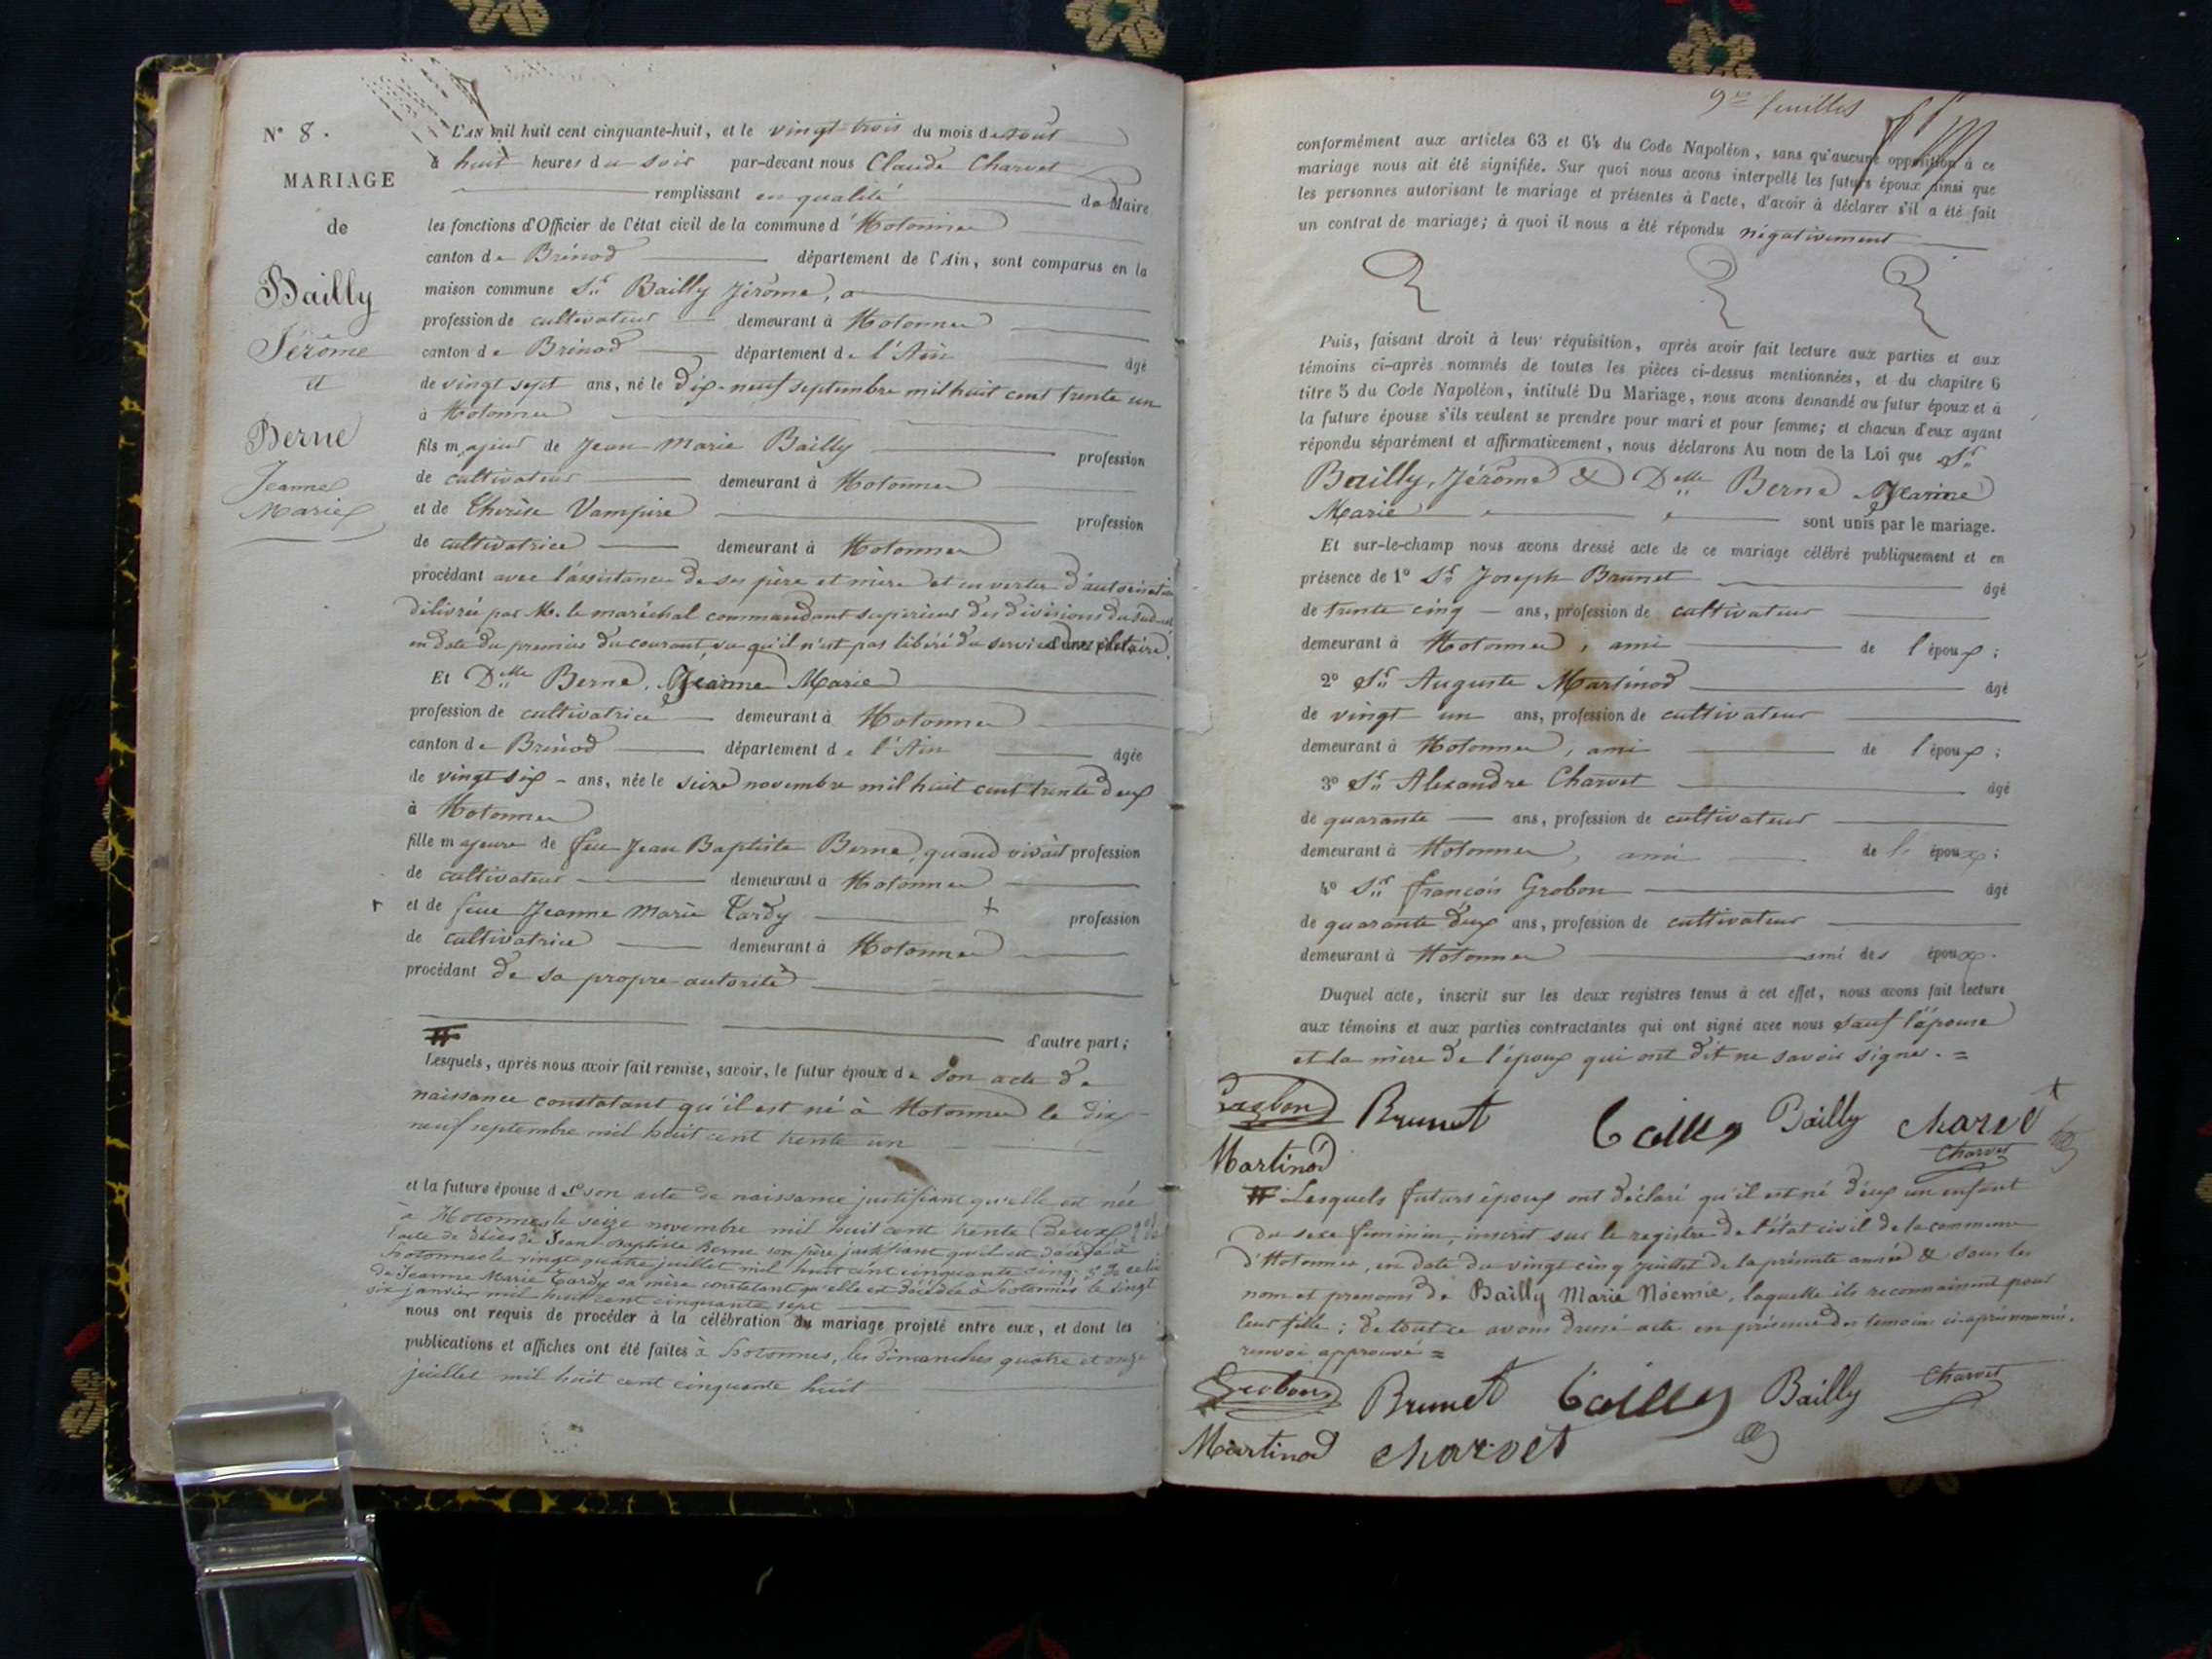 N° 8.
MARIAGE
de
Bailly
Jérôme
et
Berne
Jeanne
Marie
L'AN mil huit cent cinquante-huit, et le vingt-trois du mois d'août
à huit heures du soir par-devant nous Claude Charvet
remplissant en qualité de Maire
les fonctions d'Officier de l'état civil de la commune d'Hotonnes
canton de Brénod département de l'Ain, sont comparus en la
maison commune Sr Bailly Jérôme,
profession de cultivateur demeurant à Hotonnes
canton de Brénod département de l'Ain âgé
de vingt sept ans, né le dix-neuf septembre mil huit cent trente un
à Hotonnes
fils majeur de Jean Marie Bailly profession
de cultivateur demeurant à Hotonnes
et de Thérèse Vampire profession
de cultivatrice demeurant à Hotonnes
procédant avec l'assistance de ses père et mère et en vertu d'autorisation
délivrée par M. le maréchal commandant supérieur des divisions du sud-est
en date du premier du courant, vu qu'il n'est pas libéré du service militaire. d'une part;
Et Delle Berne, Jeanne Marie
profession de cultivatrice demeurant à Hotonnes
canton de Brénod département de l'Ain âgée
de vingt six - ans, née le seize novembre mil huit cent trente deux
à Hotonnes
fille majeure de feu Jean Baptiste Berne, quand vivait profession
de cultivateur demeurant à Hotonnes
et de feue Jeanne Marie Tardy + profession
de cultivatrice demeurant à Hotonnes
procédant de sa propre autorité
# d'autre part;
Lesquels, après nous avoir fait remise, savoir, le futur époux de son acte de
naissance constatant qu'il est né à Hotonnes le dix-
neuf septembre mil huit cent trente un
et la future épouse d 1° son acte de naissance justifiant qu'elle est née
à Hotonnes le seize novembre mil huit cent trente deux 2° de
l'acte de décès de Jean Baptiste Berne son père justifiant qu'il est décédé à
Hotonnes le vingt quatre juillet mil huit cent cinquante cinq; 3° de celui
de Jeanne Marie Tardy sa mère constatant qu'elle est décédée à Hotonnes le vingt
six janvier mil huit cent cinquante sept
nous ont requis de procéder à la célébration du mariage projeté entre eux, et dont les
publications et affiches ont été faites à Hotonnes, les dimanches quatre et onze
juillet mil huit cent cinquante huit
9me feuillet
conformément aux articles 63 et 64 du Code Napoléon, sans qu'aucune opposition à ce
mariage nous ait été signifiée. Sur quoi nous avons interpellé les futurs époux ainsi que
les personnes autorisant le mariage et présentes à l'acte, d'avoir à déclarer s'il a été fait
un contrat de mariage; à quoi il nous a été répondu négativement
Puis, faisant droit à leur réquisition, après avoir fait lecture aux parties et aux
témoins ci-après nommés de toutes les pièces ci-dessus mentionnées, et du chapitre 6
titre 5 du Code Napoléon, intitulé Du Mariage, nous avons demandé au futur époux et à
la future épouse s'ils veulent se prendre pour mari et pour femme; et chacun d'eux ayant
répondu séparément et affirmativement, nous déclarons Au nom de la Loi que Sr
Bailly, Jérôme & Delle Berne Jeanne
Marie sont unis par le mariage.
Et sur-le-champ nous avons dressé acte de ce mariage célébré publiquement et en
présence de 1° Sr Joseph Brunet âgé
de trente cinq — ans, profession de cultivateur
demeurant à Hotonnes, ami de l'époux;
2° Sr Auguste Martinod âgé
de vingt un ans, profession de cultivateur
demeurant à Hotonnes, ami de l'époux;
3° Sr Alexandre Charvet âgé
de quarante — ans, profession de cultivateur
demeurant à Hotonnes, ami de l'époux;
4° Sr François Grobon âgé
de quarante deux ans, profession de cultivateur
demeurant à Hotonnes ami des époux.
Duquel acte, inscrit sur les deux registres tenus à cet effet, nous avons fait lecture
aux témoins et aux parties contractantes qui ont signé avec nous sauf l'épouse
et la mère de l'époux qui ont dit ne savoir signer. =
Grobon Brunet Bailly Bailly Charvet
Martinod Charvet
# Lesquels futurs époux ont déclaré qu'il est né d'eux un enfant
du sexe féminin, inscrit sur le registre de l'état civil de la commune
d'Hotonnes, en date du vingt cinq juillet de la présente année & sous les
nom et prénoms de Bailly Marie Noémie, laquelle ils reconnaissent pour
leur fille; de tout ce avons dressé acte en présence des témoins ci-après nommés.
renvoi approuvé =
Grobon Brunet Bailly Bailly Charvet
Martinod Charvet